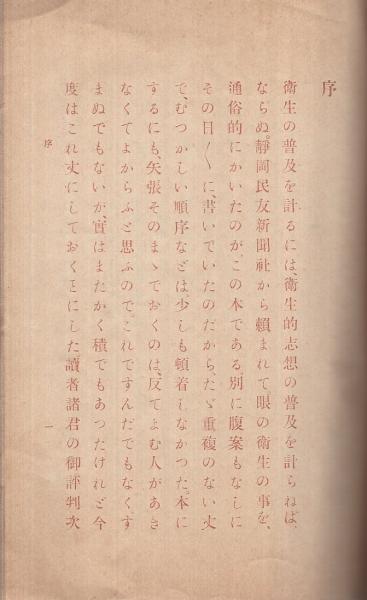 序
衛生の普及を計るには、衛生的志想の普及を計らねば、
ならぬ。靜岡民友新聞社から頼まれて、眼の衛生の事を、
通俗的にかいたのが、この本である。別に腹案もなしに
その日〳〵に、書いていたのだから、たゞ重複のない丈
で、むつかしい順序などは、少しも頓着しなかつた。本に
するにも、矢張そのまゝでおくのは、反てよむ人があき
なくてよからふと思ふので。これですんだでもなく、す
まぬでもないが、實はまたかく積でもあつたけれど今
度はこれ丈にしておくことにした讀者諸君の御評判次
序
一